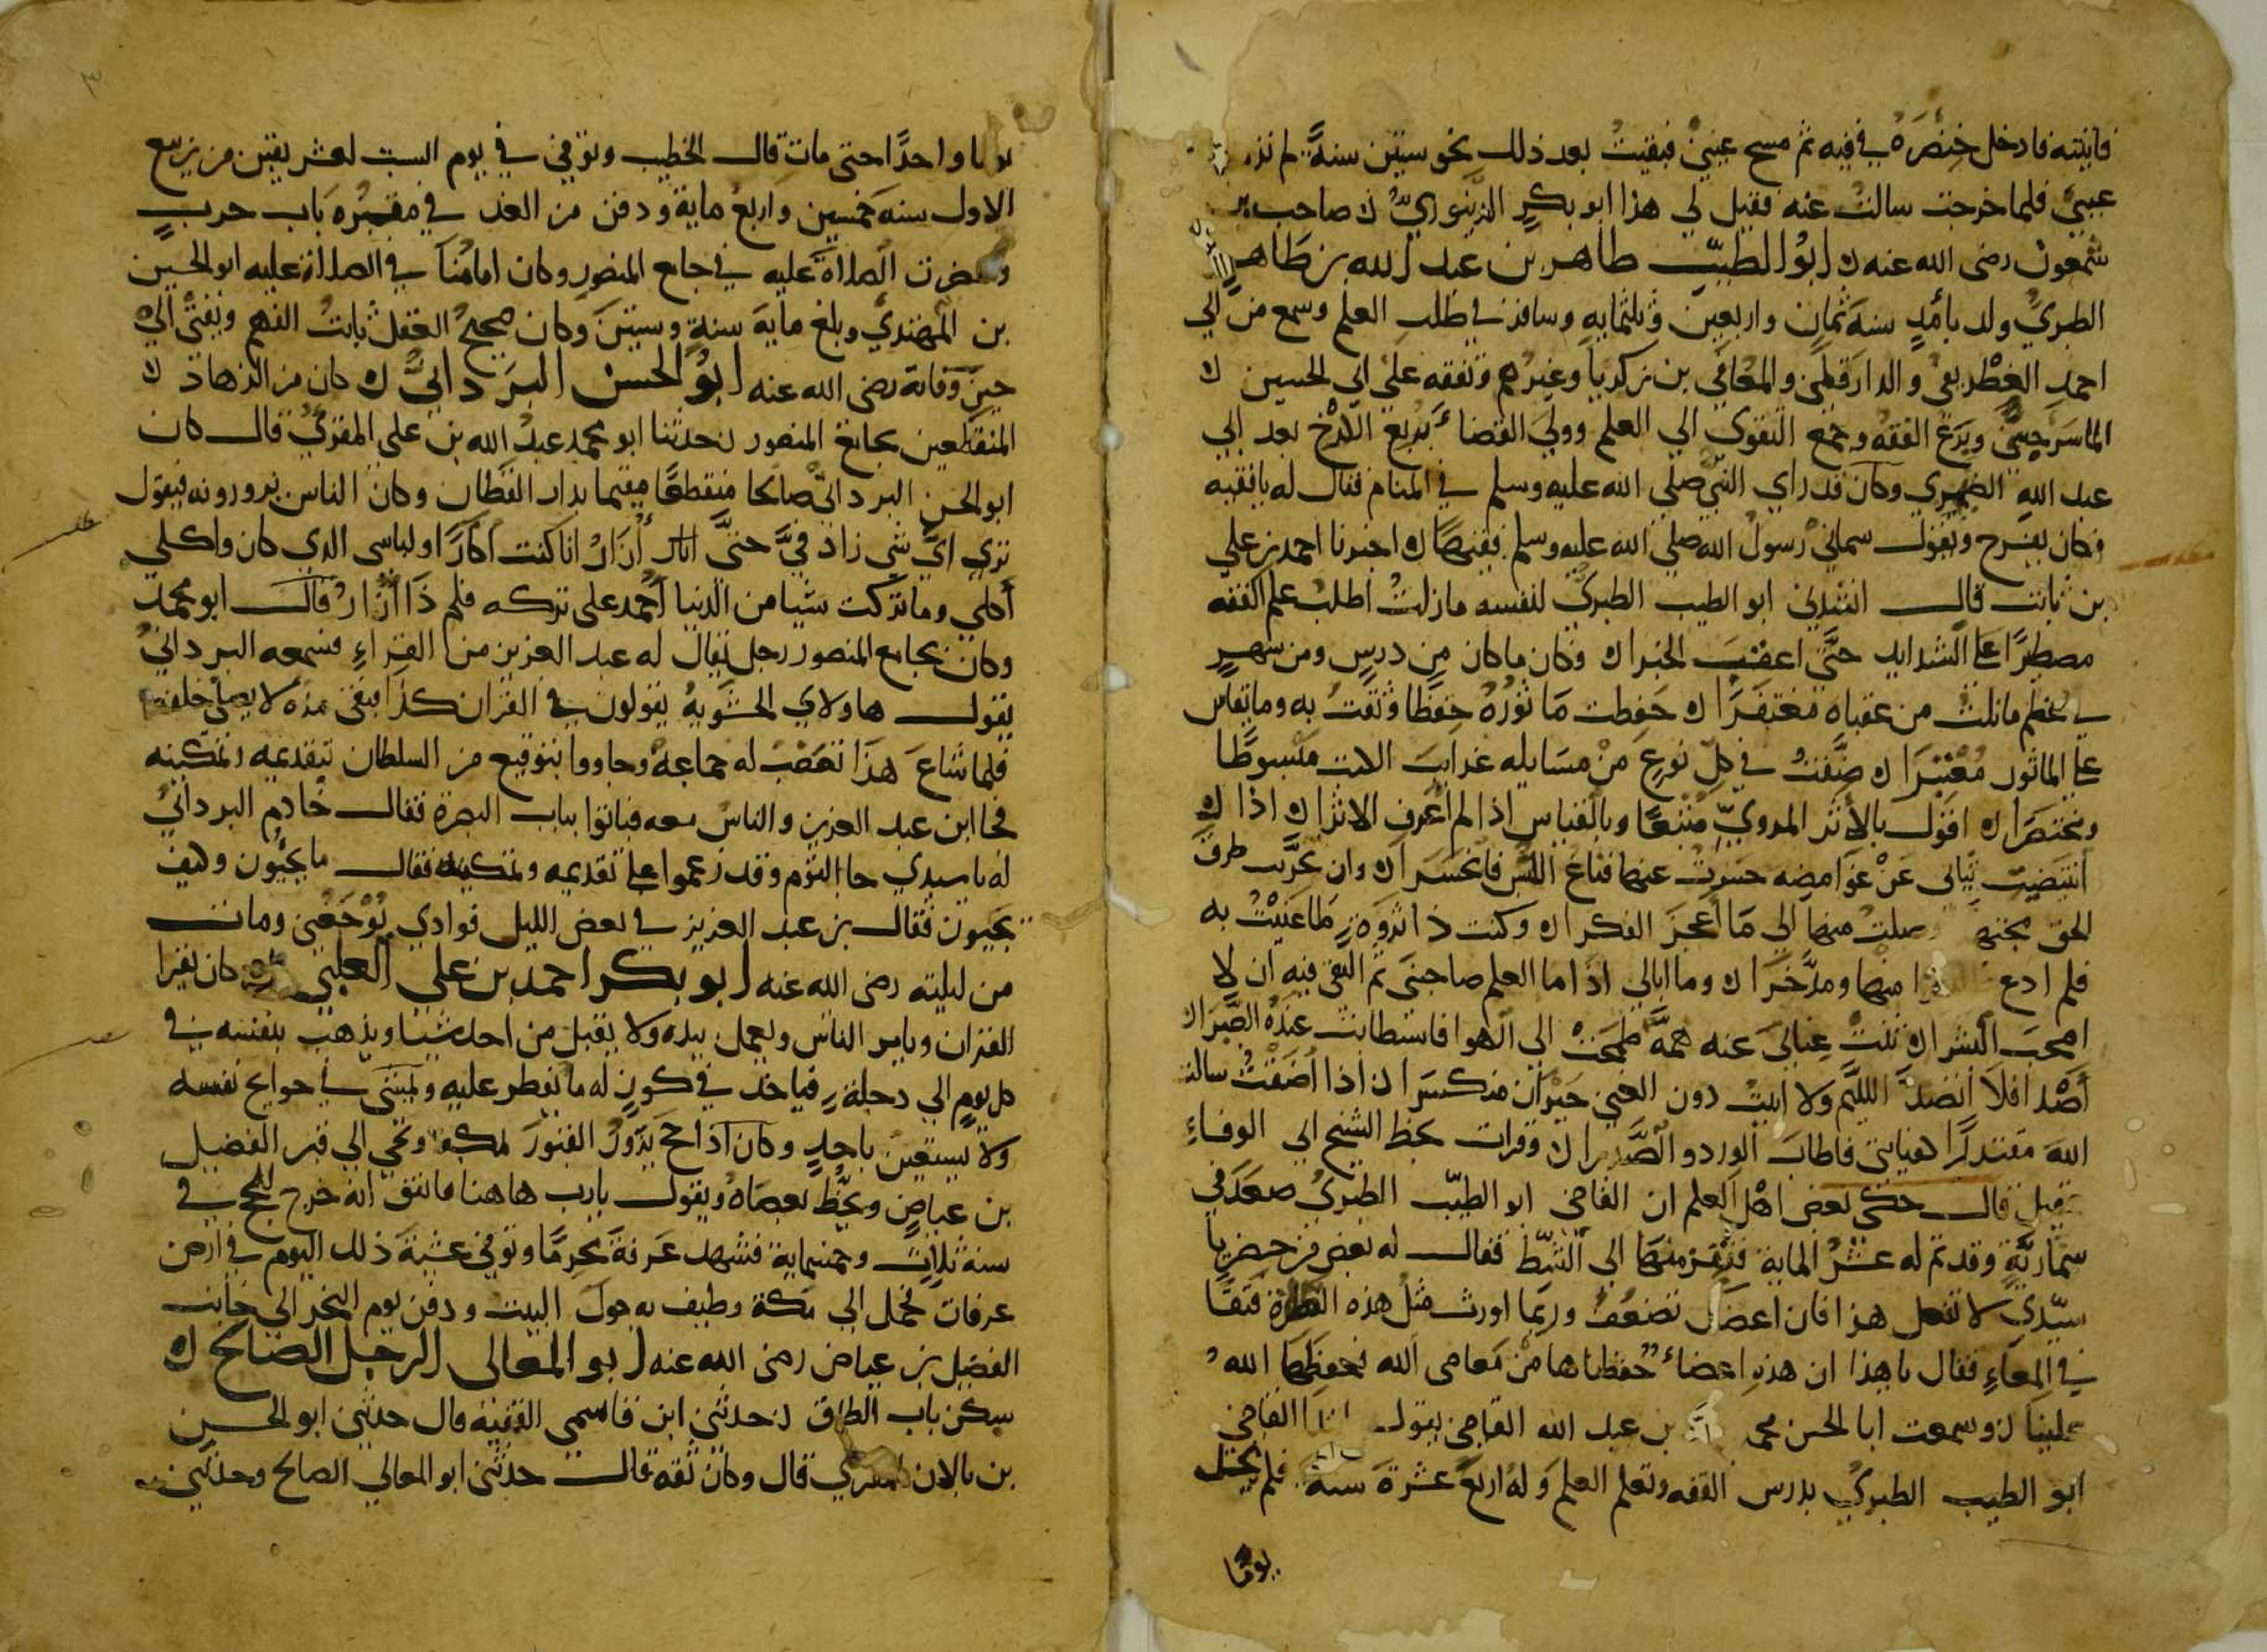 فاتيته فادخل خنصره في فيه ثم مسح عيني فبقيت بعد ذلك نحو ستين سنة لم ترمد
عيني فلما خرجت سالت عنه فقيل لي هذا ابو بكر الدينوري صاحب بن
شمعون رضى الله عنه ابو الطيب طاهر بن عبد الله بن طاهر
الطبري ولد بأمل سنة ثمان واربعين وثلثمايه وسافر في طلب العلم وسمع من ابي
احمد الغطريفي والدارقطني والمعافي بن زكريا وغيرهم وتفقه على ابي الحسين
الماسرجسي وبرع الفقه وجمع التقوى الي العلم وولي القضاء بربع الكرخ بعد ابي
عبد الله الصيمري وكان قد راي النبي صلى الله عليه وسلم في المنام فقال له يا فقيه
فكان يفرح ويقول سماني رسول الله صلى الله عليه وسلم فقيها اخبرنا احمد بن علي
بن ثابت قال انشدني ابو الطيب الطبري لنفسه مازلت اطلب علم الفقه
مصطبرا على الشدايد حتى اعقب الخبرا وكان ما كان من درس ومن سهر
في عظم ما نلت من عقباه مغتفرا حفظت ماثوره حفظا وثقت به وما يقاس
على الماثور معتبرا صنفت في كل نوع من مسايله غرايب الكتب مبسوطا
ومختصرا اقول بالاثر المروي متبعا وبالقياس اذا لم اعرف الاثرا اذا
انتضيت ثيابي عن غوامضه حسرت عنها قناع اللبس فانحسرا وان تحريت طرق
الحق مجتهد وصلت منها الي ما اعجز الفكرا وكنت ذا ثروة لما عنيت به
فلم ادع منها ومدخرا وما ابالي اذا ما العلم صاحبني ثم التقى فيه ان لا
اصحب اليسرا ثنت عناني عنه همة طمحت الي الهوا فاستطابت عنده الصبرا
أصد افلا انضد اللئيم ولا ابيت دون الغني حيران منكسرا اذا اضقت سالت
الله مقتدرا كفايتي فاطاب الورد والصدرا وقرات بخط الشيخ ابي الوفاء
بن عقيل قال حكى بعض اهل العلم ان القاضي ابو الطيب الطبري صعد في
سمارية وقد تم له عشر الماية فقفز منها الي الشط فقال له بعض من حضر يا
سيدي لا تفعل هذا فان اعضاك تضعف وربما اورث مثل هذه الطفرة فتقا
في المعاء فقال يا هذا ان هذه اعضاء حفظناها من معاصي الله فحفظها الله
علينا وسمعت ابا الحسن محمد بن عبد الله القاضي يقول ابتدا القاضي
ابو الطيب الطبري بدرس الفقه وتعلم العلم وله اربع عشرة سنة فلم يخل
يوما
يوما واحدا حتى مات قال الخطيب وتوفي في يوم السبت لعشر بقين من ربيع
الاول سنة خمسين واربع ماية ودفن من الغد في مقبره باب حرب
وحضرت الصلاة عليه في جامع المنصور وكان امامنا في الصلاة عليه ابو الحسين
بن المهتدي وبلغ ماية سنة وسنتين وكان صحيح العقل ثابت الفهم ويفتي الي
حين وفاته رضى الله عنه ابو الحسن البرداني كان من الزهاد
المنقطعين بجامع المنصور حدثنا ابو محمد عبد الله بن علي المقري قال كان
ابو الحسن البرداني صالحا منقطعا مقيما بدار القطان وكان الناس يزورونه فيقول
ترى اي شي زاد في حتى ازار انا كنت اكارا ولباسي الذي كان واكلي
أكلي وما تركت شيا من الدنيا أحمد على تركه فلم ذا أزار قال ابو محمد
وكان بجامع المنصور رجل يقال له عبد العزيز من القراء فسمعه البرداني
يقول هاولاي الحشوية يقولون في القران كذا فبقي مدة لا يصلي خلفه
فلما شاع هذا تعصب له جماعة وجاووا بتوقيع من السلطان بتقديمه وتمكينه
فجا ابن عبد العزيز والناس معه فباتوا بباب البصرة فقال خادم البرداني
له يا سيدي جا القوم وقد زعموا على تقديمه وتمكينه فقال ما يجيون وكيف
يجيون فقال بن عبد العزيز في بعض الليل فوادي يوجعني ومات
من ليلته رضى الله عنه ابو بكر احمد بن علي العلبي كان يقرا
القران ويامر الناس ويعمل بيده ولا يقبل من احد شيا ويذهب بنفسه في
كل يوم الي دجلة فياخذ في كوز له ما يفطر عليه ويمشي في حوايج نفسه
ولا يستعين باحد وكان اذا حج يزور القبور بمكة ويجي الي قبر الفضيل
بن عياض ويخط بعصاه ويقول يا رب هاهنا فاتفق انه خرج للحج في
سنة ثلاث وخمسماية فشهد عرفة محرما وتوفي عشية ذلك اليوم في ارض
عرفات فحمل الي مكة وطيف به حول البيت ودفن يوم النحر الي جانب
الفضيل بن عياض رضى الله عنه ابو المعالي الرجل الصالح
سكن باب الطاق حدثني ابن قاسمي الفقيه قال حدثني ابو الحسن
بن بالان المقري قال وكان ثقة قال حدثني ابو المعالي الصالح وحدثني